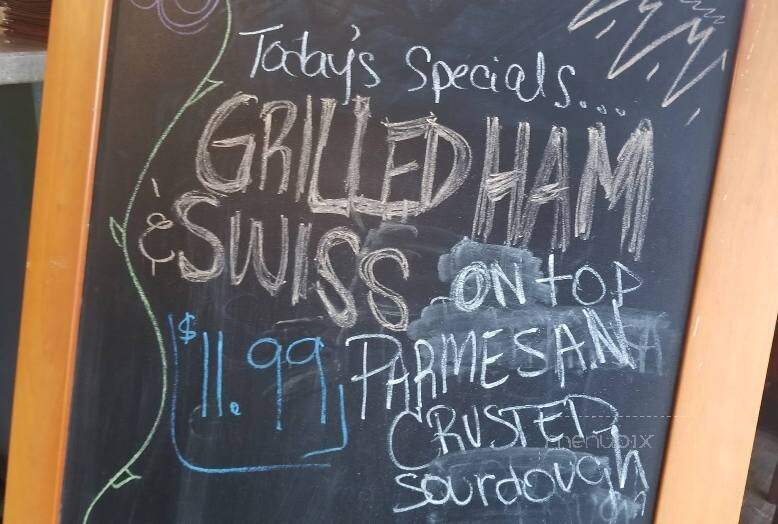 Today's Specials...
GRILLED HAM
& SWISS
ON TOP
$11.99
PARMESAN
CRUSTED
sourdough
menupix